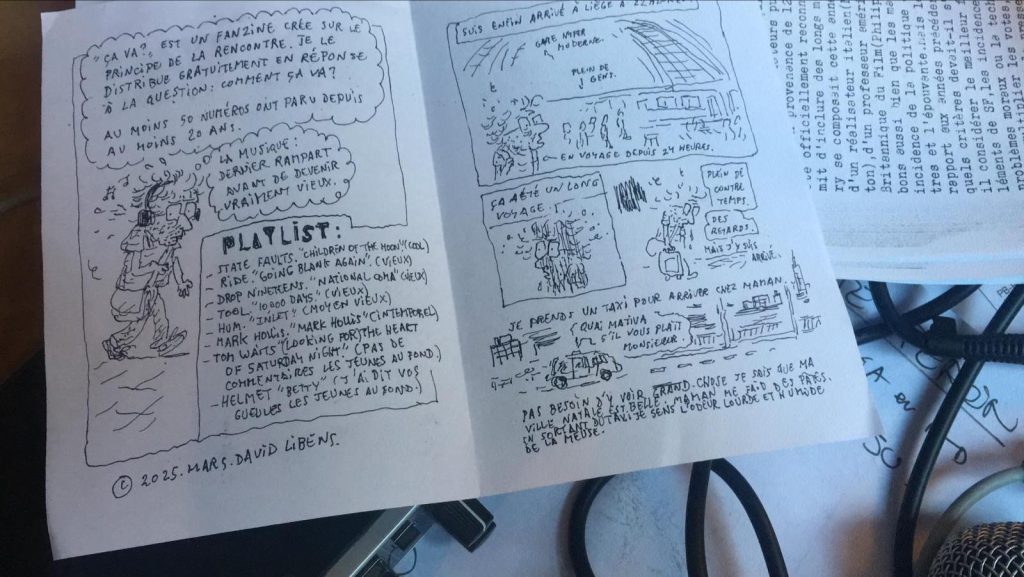 "ÇA VA?" EST UN FANZINE CRÉE SUR LE
PRINCIPE DE LA RENCONTRE. JE LE
DISTRIBUE GRATUITEMENT EN RÉPONSE
À LA QUESTION: COMMENT ÇA VA?
AU MOINS 50 NUMÉROS ONT PARU DEPUIS
AU MOINS 20 ANS.
LA MUSIQUE:
DERNIER RAMPART
AVANT DE DEVENIR
VRAIMENT VIEUX.
PLAYLIST:
- STATE FAULTS. "CHILDREN OF THE MOON" (COOL)
- RIDE. "GOING BLANK AGAIN". (VIEUX)
- DROP NINETEENS. "NATIONAL COMA" (VIEUX)
- TOOL. "10000 DAYS". (VIEUX)
- HUM. "INLET" (MOYEN VIEUX)
- MARK HOLLIS. "MARK HOLLIS" (INTEMPOREL)
- TOM WAITS "(LOOKING FOR) THE HEART
OF SATURDAY NIGHT". (PAS DE
COMMENTAIRES LES JEUNES AU FOND.)
- HELMET "BETTY" (J'AI DIT VOS
GUEULES LES JEUNES AU FOND.)
© 2025. MARS. DAVID LIBENS.
SUIS ENFIN ARRIVÉ À LIÈGE À
GARE HYPER
MODERNE.
PLEIN DE
GENS.
EN VOYAGE DEPUIS 24 HEURES.
ÇA A ÉTÉ UN LONG
VOYAGE.
PLEIN DE
CONTRE
TEMPS.
DES
REGARDS.
MAIS J'Y SUIS
ARRIVÉ.
JE PRENDS UN TAXI POUR ARRIVER CHEZ MAMAN.
QUAI MATIVA
S'IL VOUS PLAÎT
MONSIEUR.
PAS BESOIN D'Y VOIR GRAND-CHOSE JE SAIS QUE MA
VILLE NATALE EST BELLE. MAMAN ME FAIT DES PÂTES.
EN SORTANT DU TAXI JE SENS L'ODEUR LOURDE ET HUMIDE
DE LA MEUSE.
provenance de la
te officiellement reconn
mit d'inclure des longs m
ry se composait cette anné
d'un réalisateur italien(
ton),d'un professeur améri
Britannique du Film(Philip
bons aussi bien que les ma
incidence de la politique
tres et l'épouvante.mais l
rapport aux années précéde
quels critères devait-il s
il considérer le meilleur f
léments de SF,les incidence
problèmes moraux ou la tech